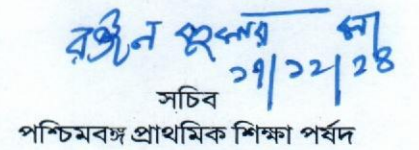 রঞ্জন কুমার ঝা
২৭/১২/২৪
সচিব
পশ্চিমবঙ্গ প্রাথমিক শিক্ষা পর্ষদ